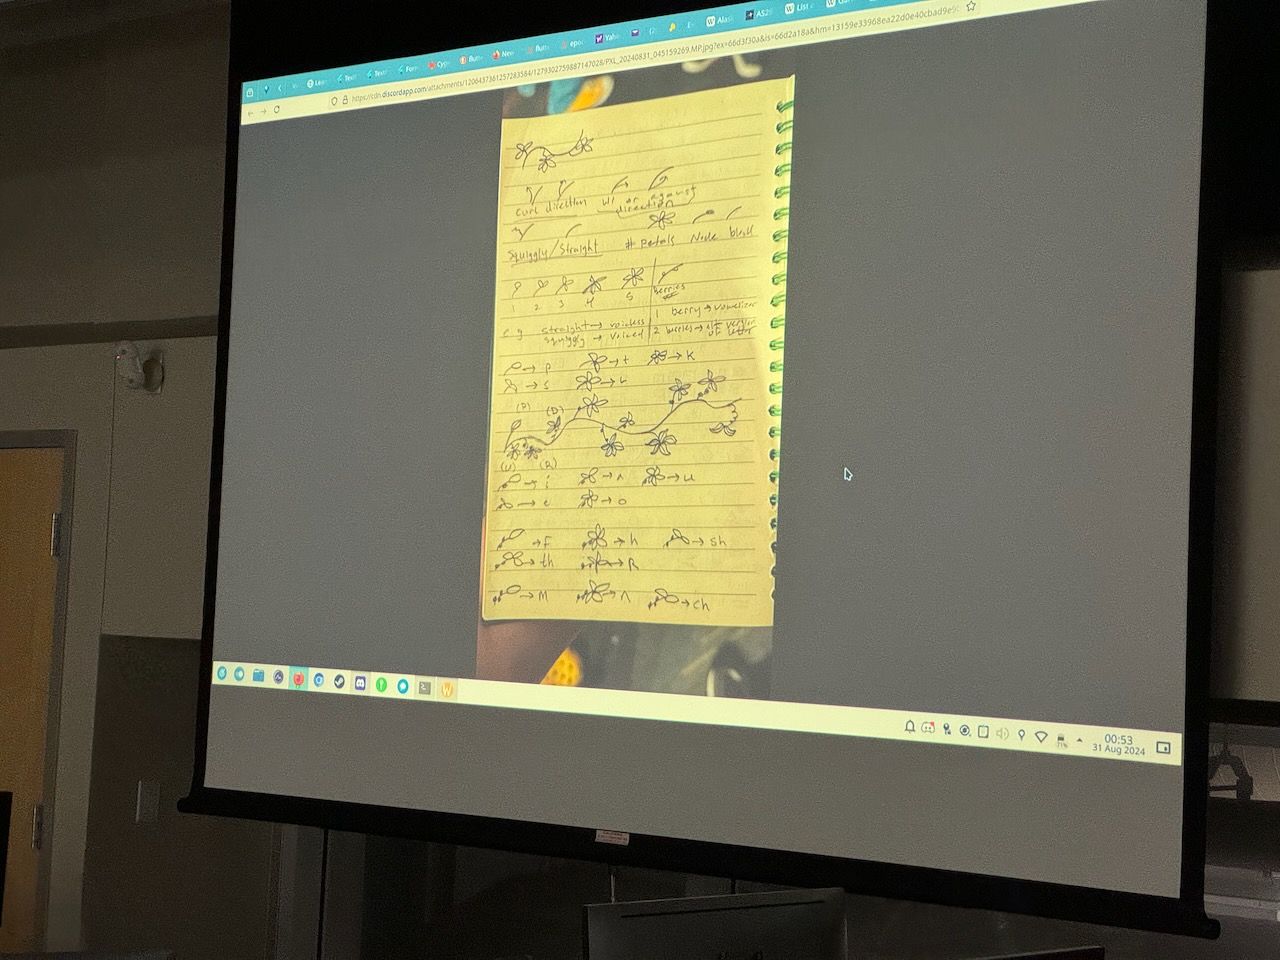 Yah
Alas
AS2
List
https://cdn.discordapp.com/attachments/1206437361257283584/1279302759887147028/PXL_20240831_045159269.MP.jpg?ex=66d3f30a&is=66d2a18a&hm=13159e33968ea22d0e40cbad9e9
curl direction w/ or against direction
squiggly/straight # petals Node blvll
1 2 3 4 5 berries
e.g. straight → voiceless 1 berry → vowelizer
squiggly → voiced 2 berries → alt version of letter
→ p → t → k
→ s
(P) (D)
(U) (R)
→ i → ʌ → u
→ e → o
→ f → h → sh
→ th → R
→ M → n → ch
71%
00:53
31 Aug 2024